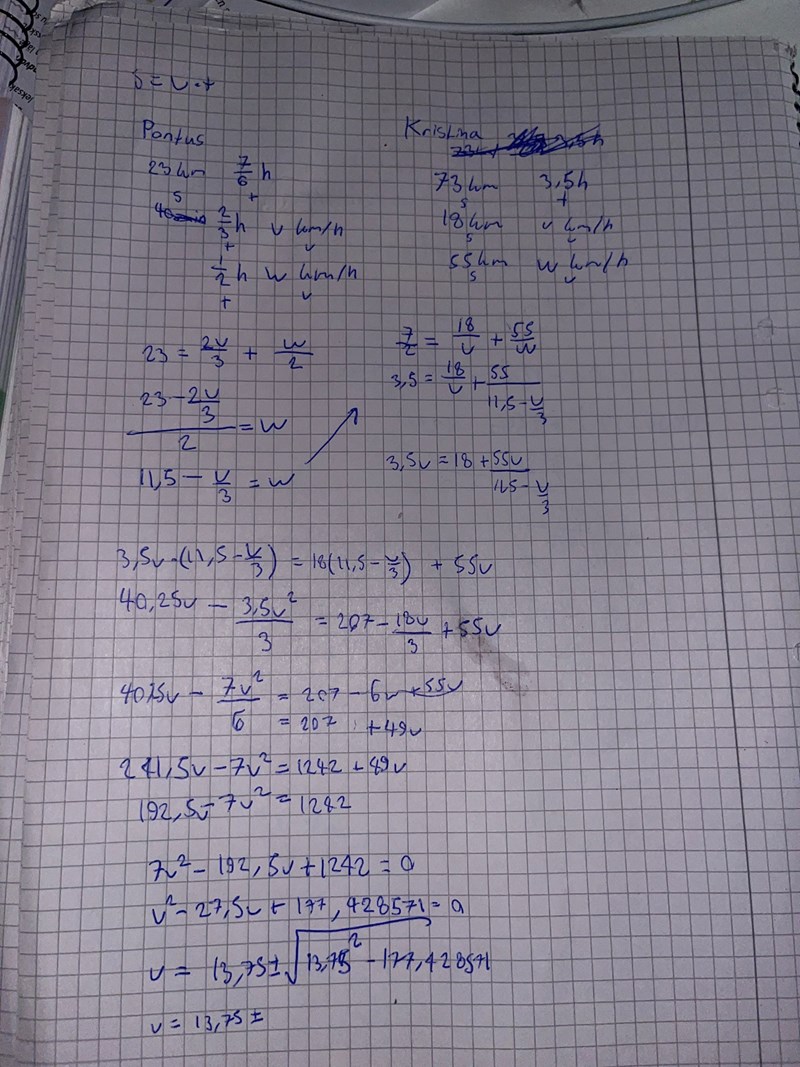 s = v · t
Pontus
23 km 7/6 h
s t
2/3 h v km/h
t v
1/2 h w km/h
t v
Kristina
73 km 3,5 h
s t
18 km v km/h
s v
55 km w km/h
s v
23 = 2v/3 + w/2
(23 - 2v/3)/2 = w
11,5 - v/3 = w
7/2 = 18/v + 55/w
3,5 = 18/v + 55/(11,5 - v/3)
3,5v = 18 + 55v/(11,5 - v/3)
3,5v · (11,5 - v/3) = 18(11,5 - v/3) + 55v
40,25v - 3,5v²/3 = 207 - 18v/3 + 55v
40,25v - 7v²/6 = 207 - 6v + 55v
= 207 + 49v
241,5v - 7v² = 1242 + 49v
192,5v - 7v² = 1242
7v² - 192,5v + 1242 = 0
v² - 27,5v + 177,428571 = 0
v = 13,75 ± √(13,75² - 177,428571)
v = 13,75 ±